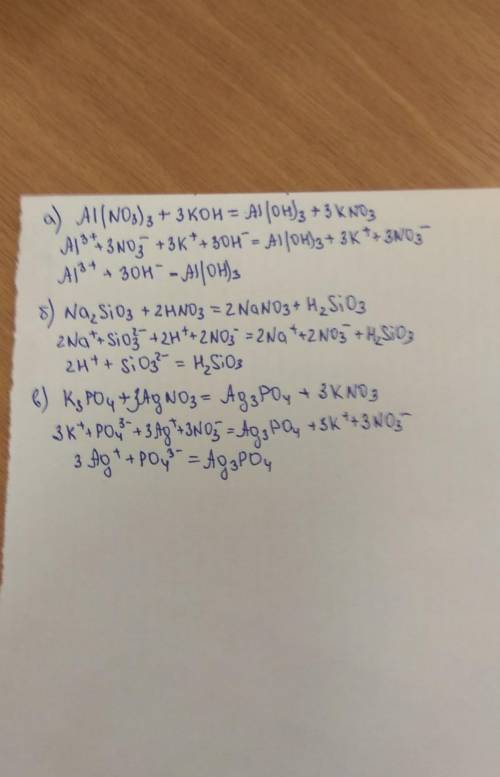 а) Al(NO₃)₃ + 3KOH = Al(OH)₃ + 3KNO₃
Al³⁺ + 3NO₃⁻ + 3K⁺ + 3OH⁻ = Al(OH)₃ + 3K⁺ + 3NO₃⁻
Al³⁺ + 3OH⁻ – Al(OH)₃
б) Na₂SiO₃ + 2HNO₃ = 2NaNO₃ + H₂SiO₃
2Na⁺ + SiO₃²⁻ + 2H⁺ + 2NO₃⁻ = 2Na⁺ + 2NO₃⁻ + H₂SiO₃
2H⁺ + SiO₃²⁻ = H₂SiO₃
в) K₃PO₄ + 3AgNO₃ = Ag₃PO₄ + 3KNO₃
3K⁺ + PO₄³⁻ + 3Ag⁺ + 3NO₃⁻ = Ag₃PO₄ + 3K⁺ + 3NO₃⁻
3Ag⁺ + PO₄³⁻ = Ag₃PO₄